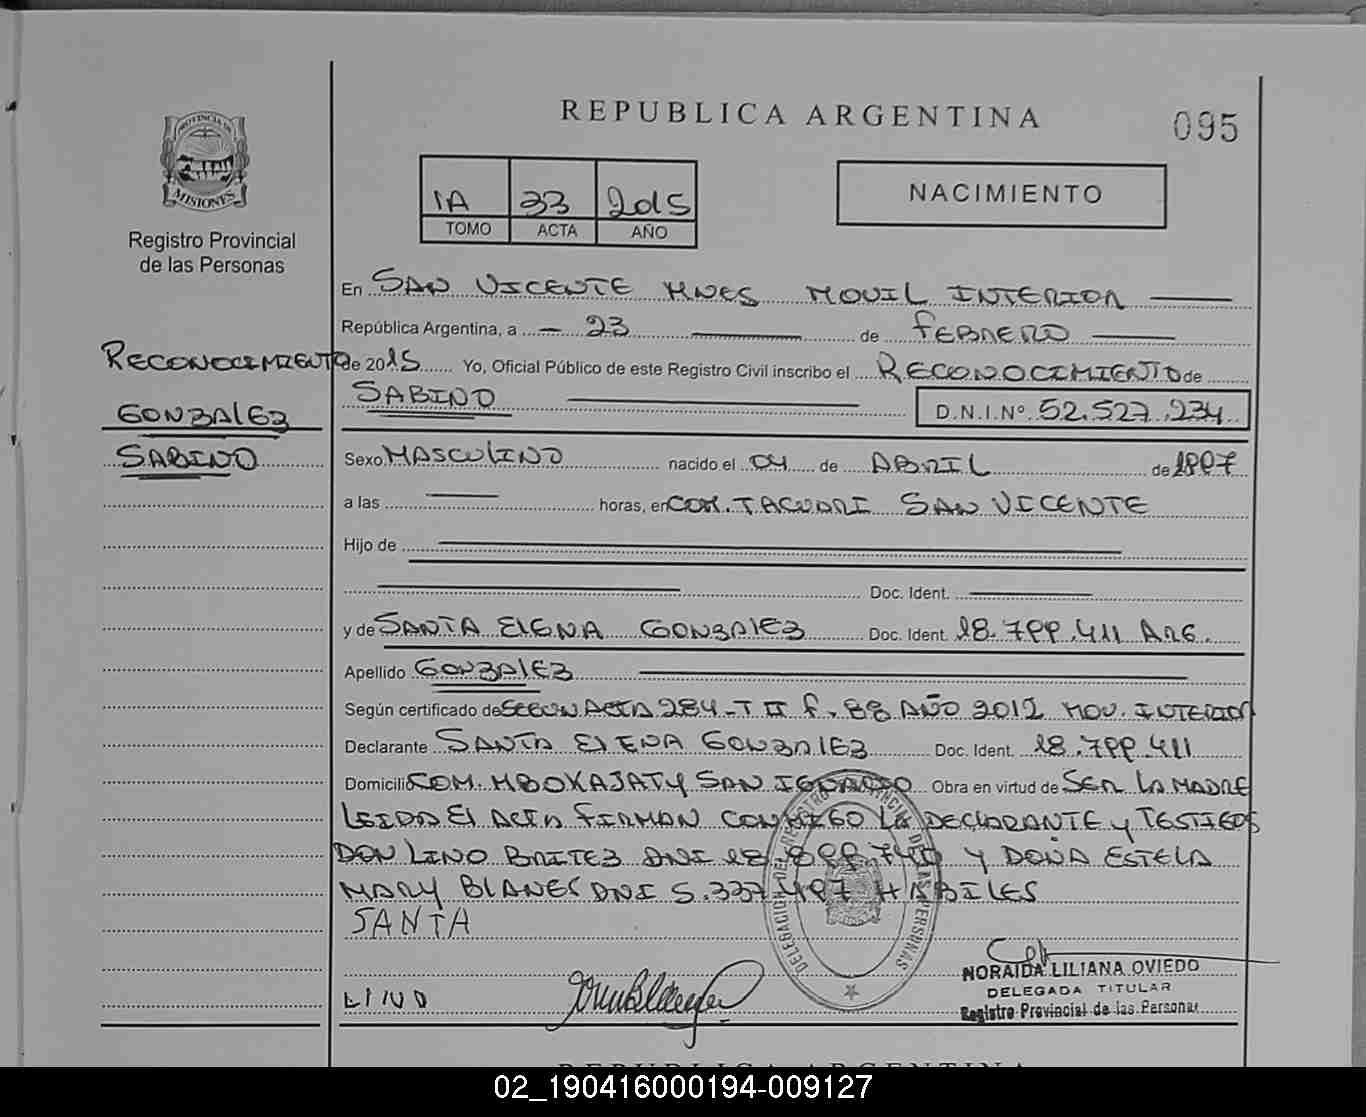 REPUBLICA ARGENTINA
095
PROVINCIA DE
MISIONES
Registro Provincial
de las Personas
1A 33 2015
TOMO ACTA AÑO
NACIMIENTO
En SAN VICENTE MNES MOVIL INTERIOR
República Argentina, a 23 de FEBRERO
RECONOCIMIENTO
de 2015 Yo, Oficial Público de este Registro Civil inscribo el RECONOCIMIENTO de
GONZALEZ
SABINO
SABINO D.N.I.Nº 52.527.234
Sexo MASCULINO nacido el 04 de ABRIL de 1997
a las horas, en COM. TACUARI SAN VICENTE
Hijo de
Doc. Ident.
y de SANTA ELENA GONZALEZ Doc. Ident. 18.799.411 ARG.
Apellido GONZALEZ
Según certificado de SEGUN ACTA 284-T II F. 88 AÑO 2012 MOV. INTERIOR
Declarante SANTA ELENA GONZALEZ Doc. Ident. 18.799.411
Domicilio COM. MBOKAJATY SAN IGNACIO Obra en virtud de SER LA MADRE
LEIDA El ACTA FIRMAN CONMIGO LA DECLARANTE y TESTIGOS
DON LINO BRITEZ DNI 18.899.740 Y DOÑA ESTELA
MARY BLANES DNI 5.337.497 HABILES
SANTA
LINO
DELEGACION DEL REGISTRO PROVINCIAL DE LAS PERSONAS
NORAIDA LILIANA OVIEDO
DELEGADA TITULAR
Registro Provincial de las Personas
REPUBLICA ARGENTINA
02_190416000194-009127